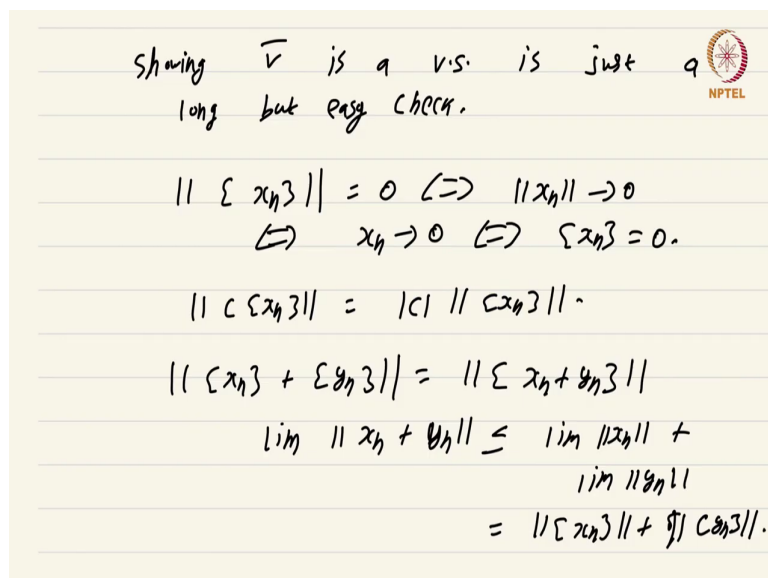 Showing V̅ is a v.s. is just a
NPTEL
long but easy check.
|| { xn } || = 0 <=> ||xn|| → 0
<=> xn → 0 <=> {xn} = 0.
|| c {xn} || = |c| || {xn} ||.
|| {xn} + {yn} || = || { xn + yn } ||
lim || xn + yn || ≤ lim ||xn|| +
lim ||yn||
= || {xn} || + || {yn} ||.